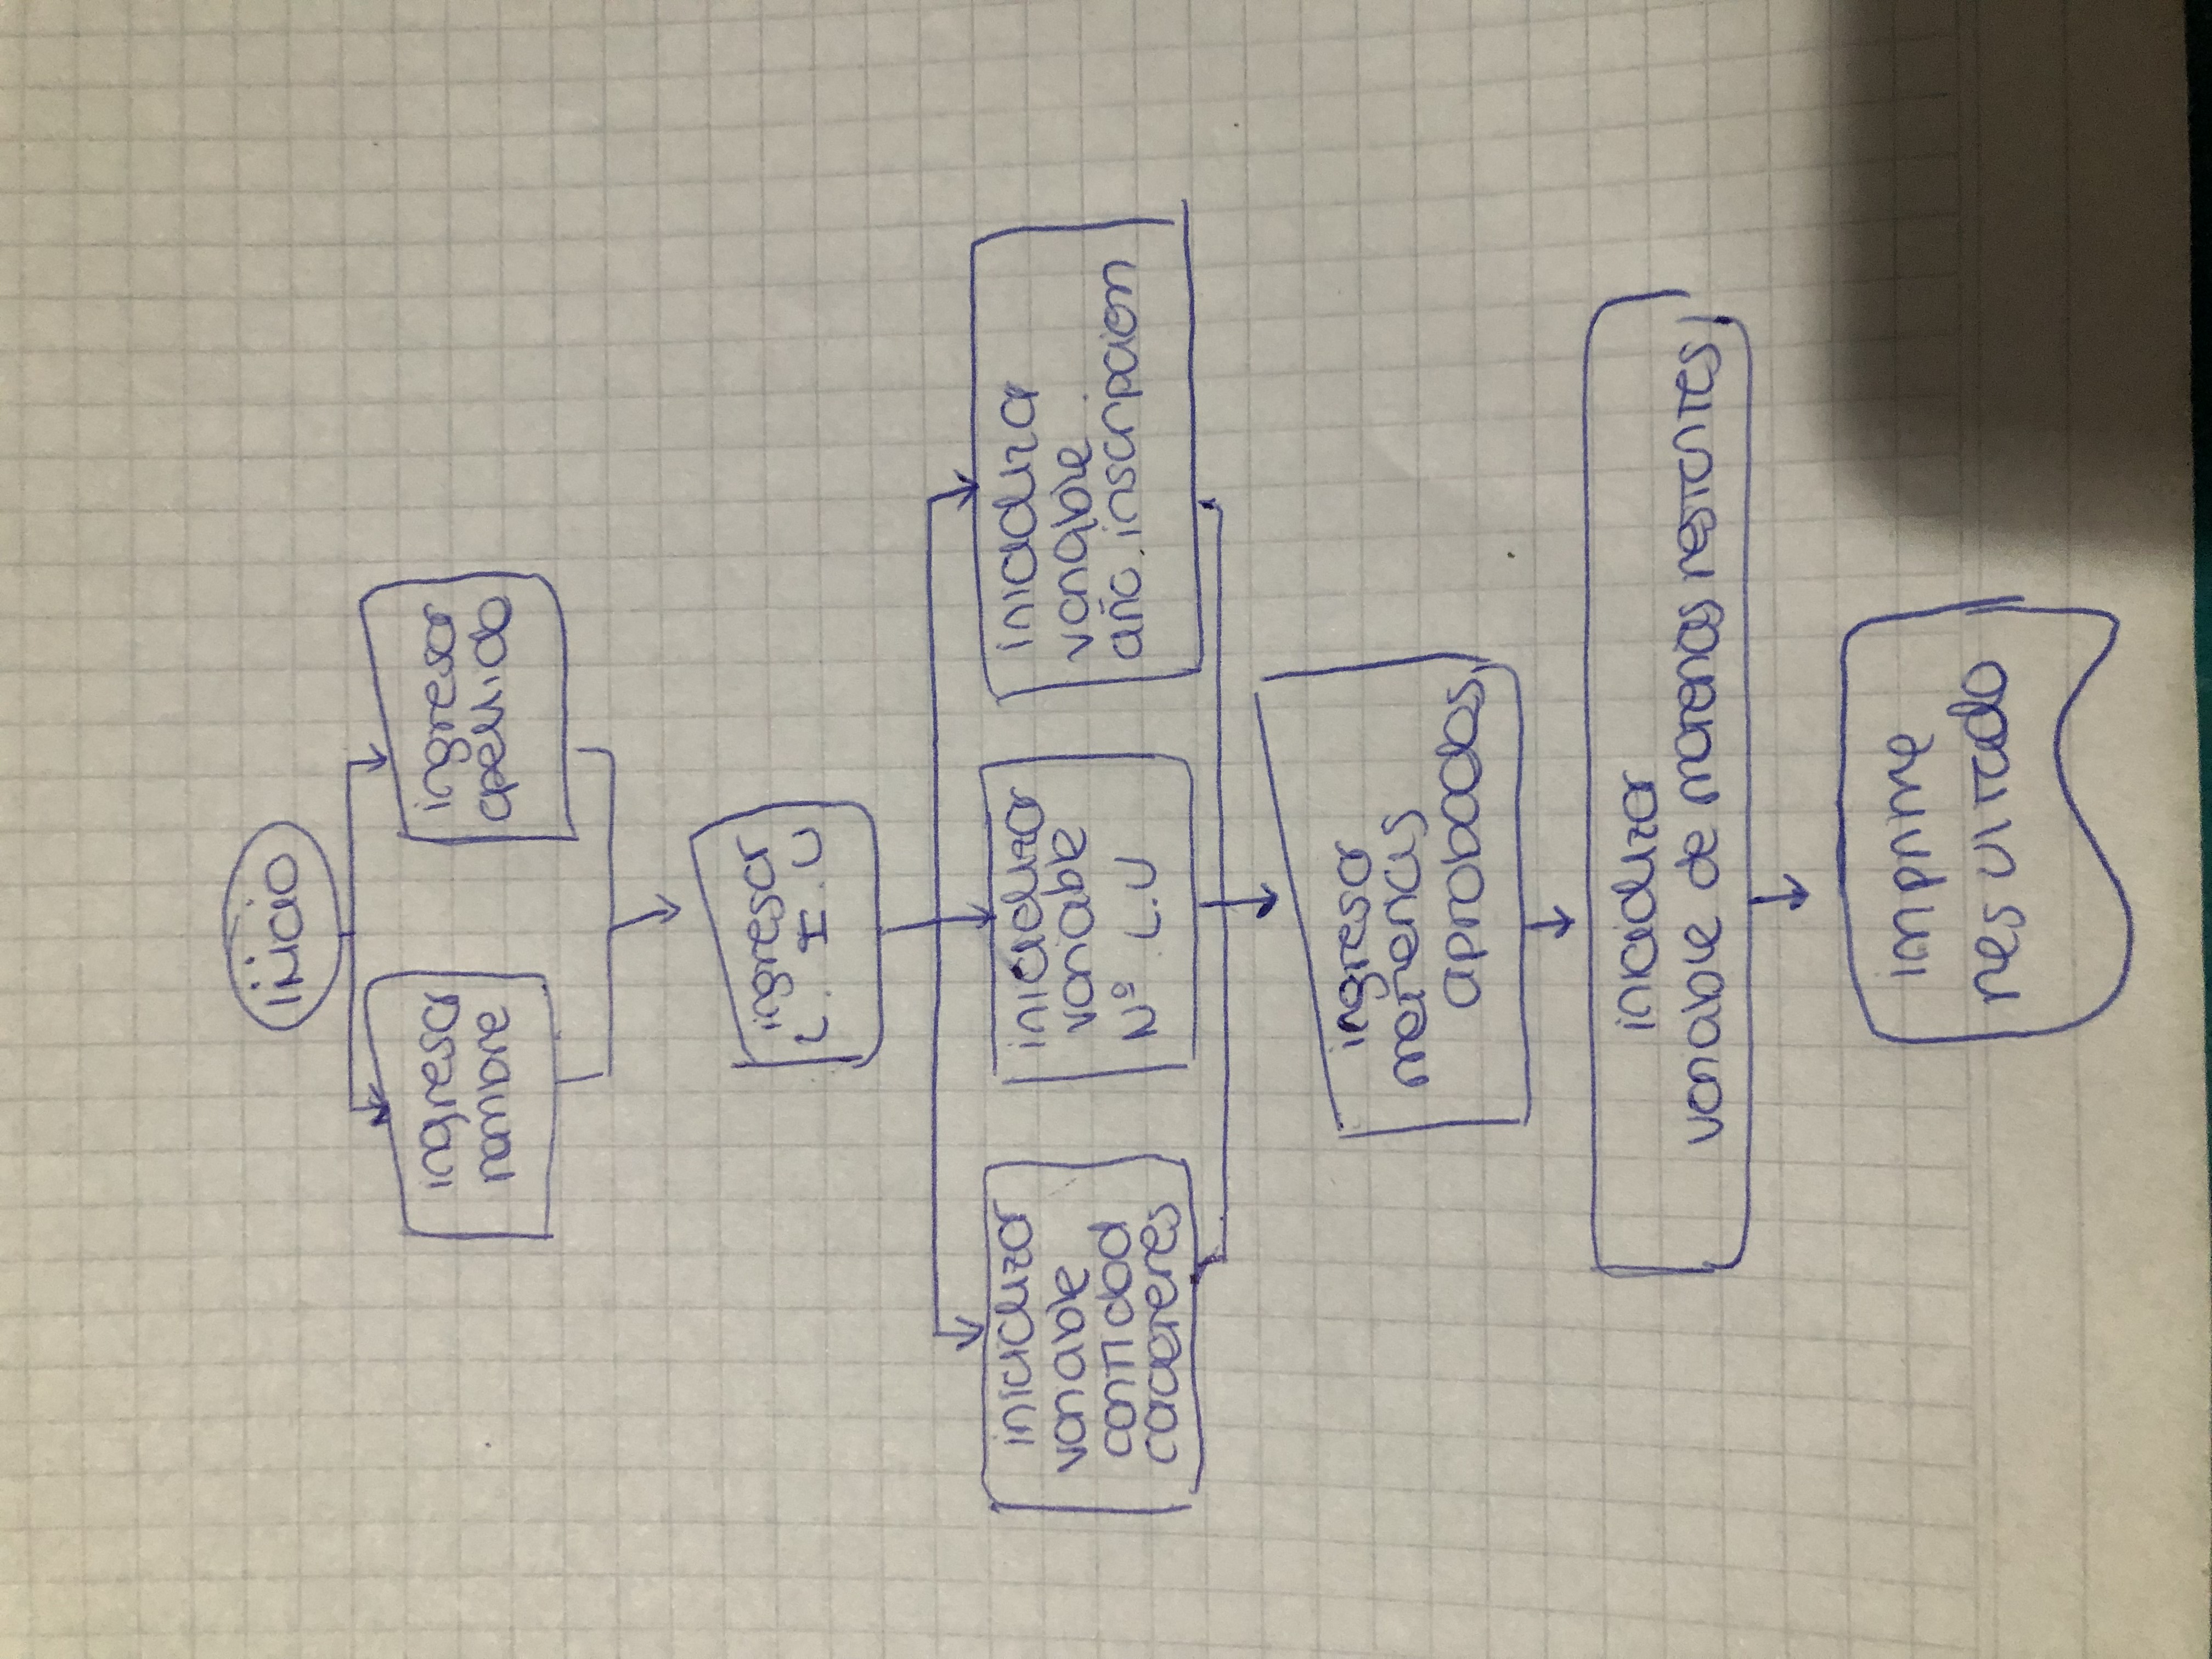 inicio
ingresar
nombre
ingresar
apellido
ingresar
L. I. U
inicializar
variable
cantidad
caracteres
inicializar
variable
Nº L.U
inicializar
variable
año inscripcion
ingresar
materias
aprobadas
inicializar
variable de materias restantes
imprime
resultado